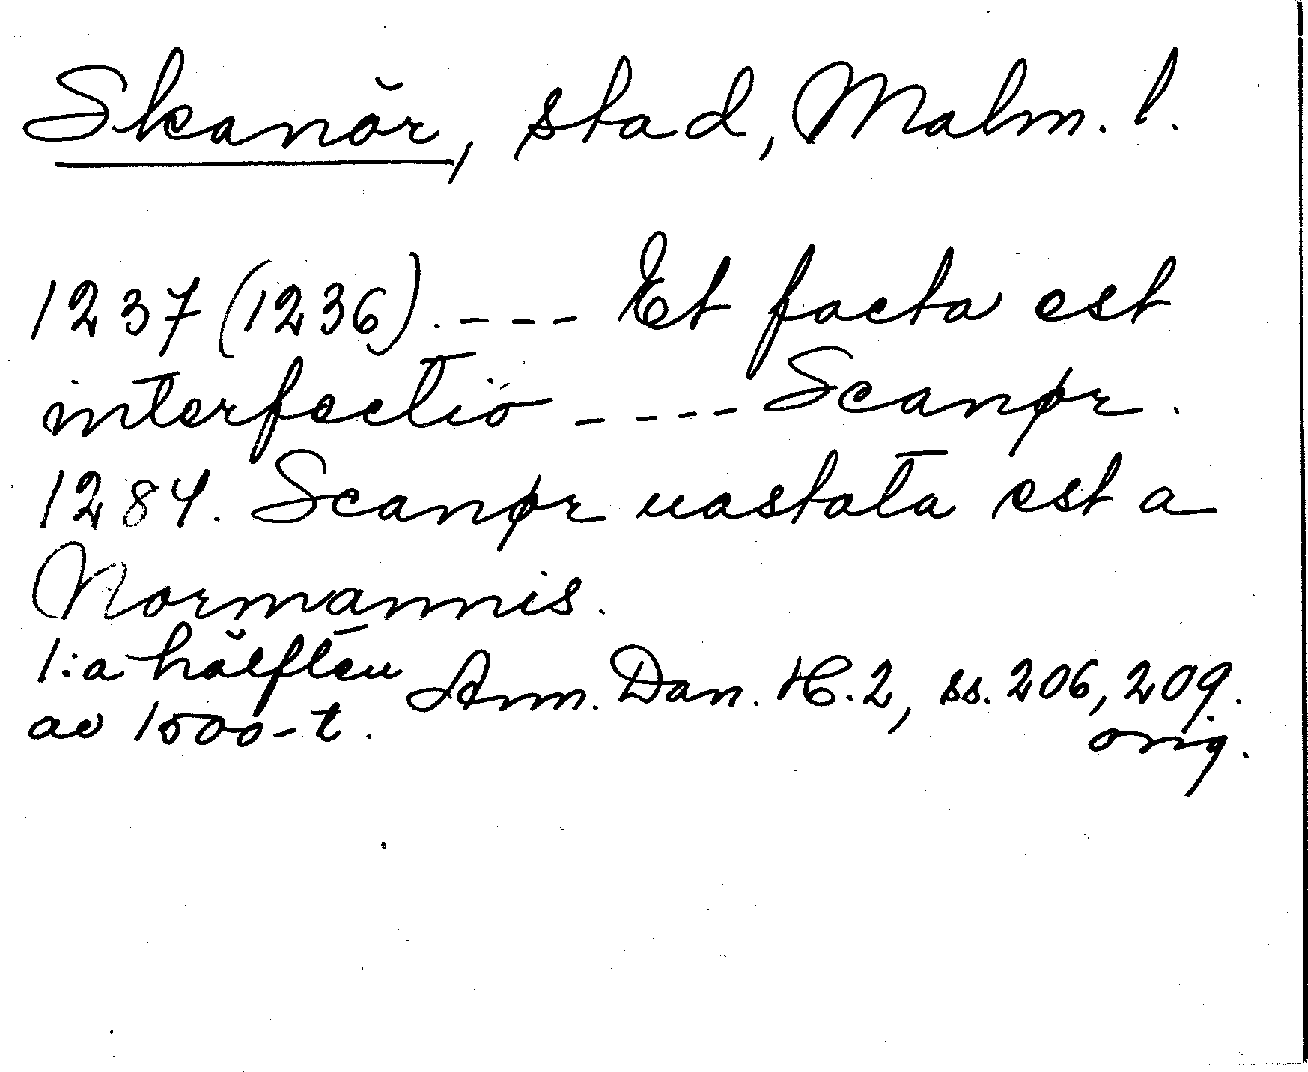 Skanör, stad, Malm. l.
1237 (1236). ---- Et facta est
interfectio ---- Scanør.
1284. Scanør uastata est a
Normannis.
1:a hälften
av 1500-t. Ann. Dan. H. 2, ss. 206, 209.
orig.